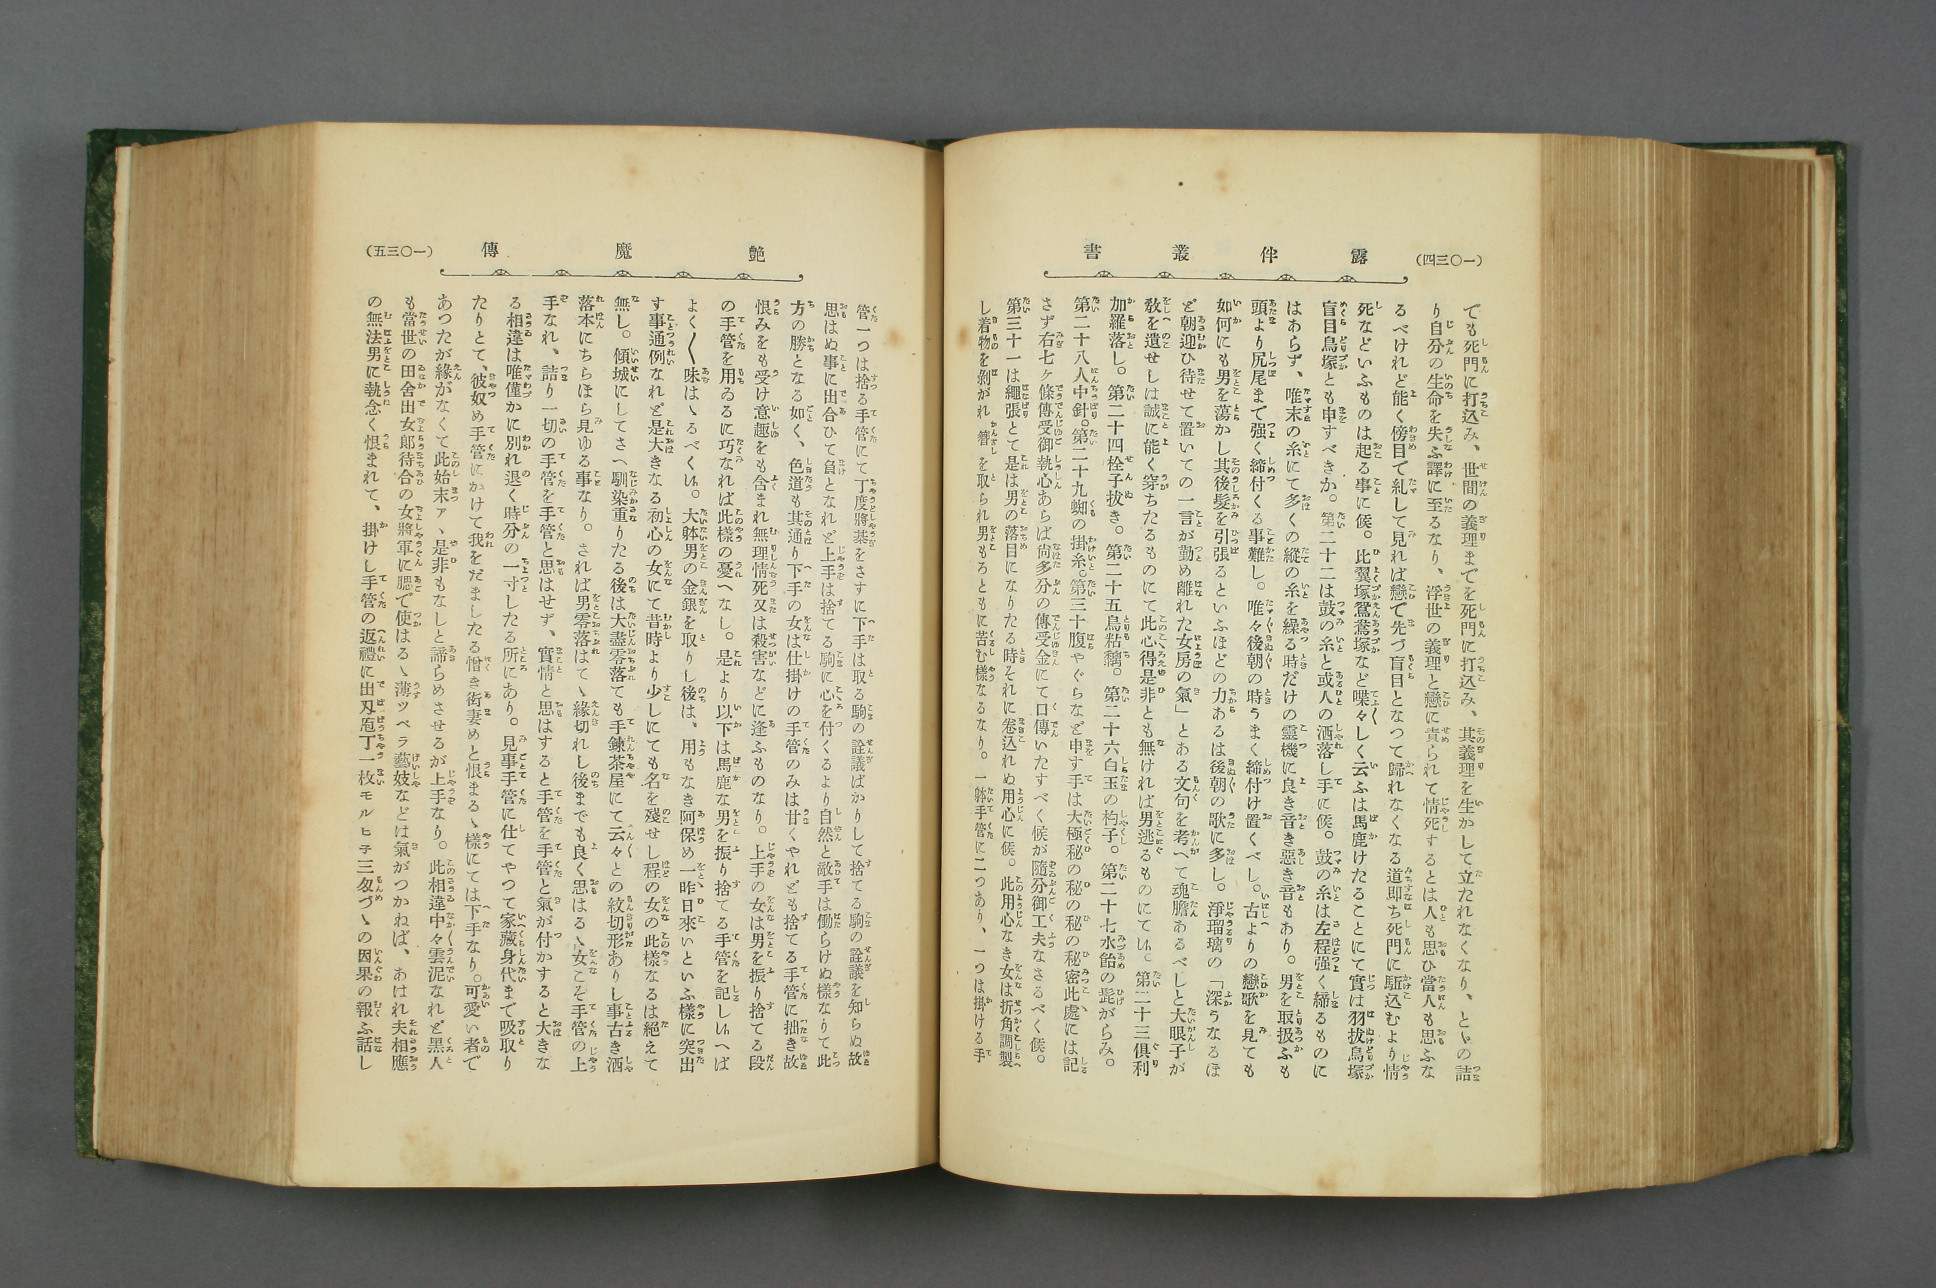 (一〇三四)
露伴叢書
でも死門に打込み、世間の義理までを死門に打込み、其義理を生かして立たれなくなり、とゞの詰
り自分の生命を失ふ譯に至るなり、浮世の義理と戀に責られて情死するとは人も思ひ當人も思ふな
るべけれど能く傍目で糺して見れば戀で先づ盲目となつて歸れなくなる道即ち死門に駈込むより情
死などいふものは起る事に候。比翼塚鴛鴦塚など喋々しく云ふは馬鹿けたることにて實は羽拔鳥塚
盲目鳥塚とも申すべきか。第二十二は鼓の糸と或人の洒落し手に候。鼓の糸は左程强く締るものに
はあらず、唯末の糸にて多くの縱の糸を繰る時だけの靈機に良き音き惡き音もあり。男を取扱ふも
頭より尻尾まで强く締付くる事難し。唯々後朝の時うまく締付け置くべし。古よりの戀歌を見ても
如何にも男を蕩かし其後髮を引張るといふほどの力あるは後朝の歌に多し。淨瑠璃の「深うなるほ
ど朝迎ひ待せて置いての一言が勤め離れた女房の氣」とある文句を考へて魂膽あるべしと大眼子が
敎を遺せしは誠に能く穿ちたるものにて此心得是非とも無ければ男逃るものにてい。第二十三俱利
加羅落し。第二十四栓子拔き。第二十五鳥粘黐。第二十六白玉の杓子。第二十七水飴の髭がらみ。
第二十八人中針。第二十九蜘の掛糸。第三十腹やぐらなど申す手は大極秘の秘の秘の秘密此處には記
さず右七ヶ條傳受御執心あらば尙多分の傳受金にて口傳いたすべく候が隨分御工夫なさるべく候。
第三十一は繩張とて是は男の落目になりたる時それに卷込れぬ用心に候。此用心なき女は折角調製
し着物を剝がれ簪を取られ男もろともに苦む樣なるなり。一躰手管に二つあり、一つは掛ける手
艶魔傳
(一〇三五)
管一つは捨る手管にて丁度將棊をさすに下手は取る駒の詮議ばかりして捨てる駒の詮議を知らぬ故
思はぬ事に出合ひて負となれど上手は捨てる駒に心を付くるより自然と敵手は働らけぬ樣なりて此
方の勝となる如く、色道も其通り下手の女は仕掛けの手管のみは甘くやれども捨てる手管に拙き故
恨みをも受け意趣をも含まれ無理情死又は殺害などに逢ふものなり。上手の女は男を振り捨てる段
の手管を用ゐるに巧なれば此樣の憂へなし。是より以下は馬鹿な男を振り捨てる手管を記しいへば
よく〱味はゝるべくい。大躰男の金銀を取りし後は、用もなき阿保め一昨日來いといふ樣に突出
す事通例なれど是大きなる初心の女にて昔時より少しにても名を殘せし程の女の此樣なるは絕えて
無し。傾城にしてさへ馴染重りたる後は大盡零落ても手鍊茶屋にて云々との紋切形ありし事古き洒
落本にちらほら見ゆる事なり。されば男零落はてゝ緣切れし後までも良く思はるゝ女こそ手管の上
手なれ、詰り一切の手管を手管と思はせず、實情と思はすると手管を手管と氣が付かすると大きな
る相違は唯僅かに別れ退く時分の一寸したる所にあり。見事手管に仕てやつて家藏身代まで吸取り
たりとて、彼奴め手管にかけて我をだましたる憎き衒妻めと恨まるゝ樣にては下手なり。可愛い者で
あつたが緣がなくて此始末アヽ是非もなしと諦らめさせるが上手なり。此相違中々雲泥なれど黑人
も當世の田舍出女郎待合の女將軍に腮で使はるゝ薄ッペラ藝妓などは氣がつかねば、あはれ夫相應
の無法男に執念く恨まれて、掛けし手管の返禮に出刄庖丁一枚モルヒ子三匁づゝの因果の報ふ話し